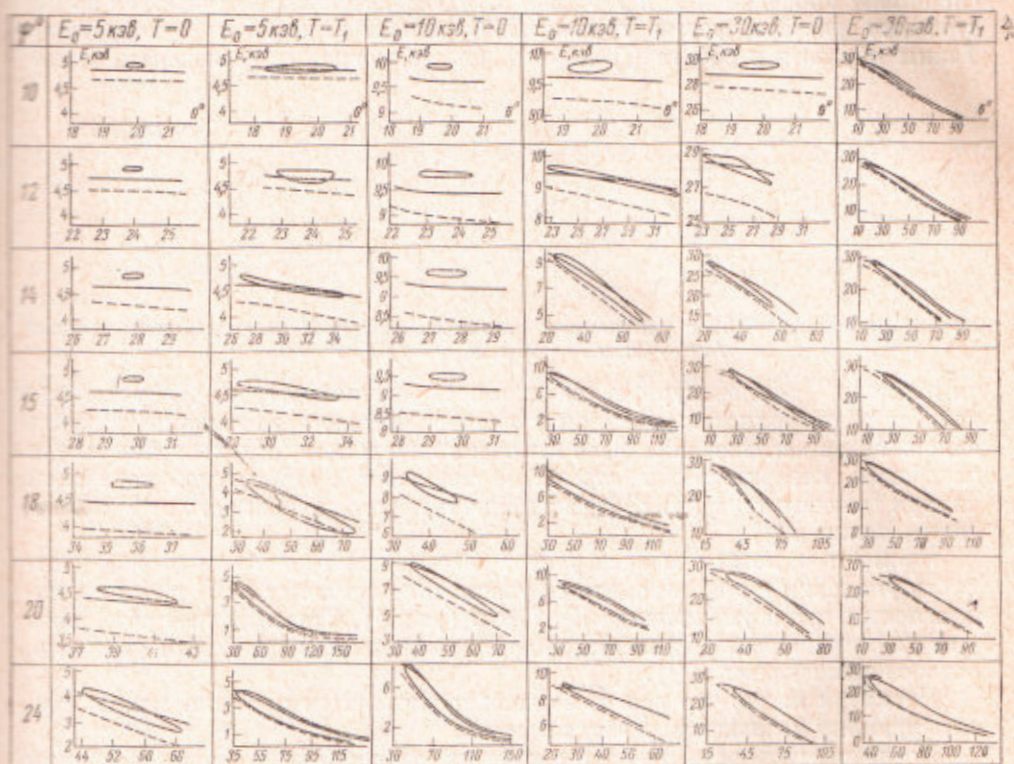 φ° E₀=5 кэв, T=0 E₀=5 кэв, T=T₁ E₀=10 кэв, T=0 E₀=10 кэв, T=T₁ E₀=30 кэв, T=0 E₀=30 кэв, T=T₁
10
E, кэв 5 4,5 4 18 19 20 21 θ°
E, кэв 5 4,5 4 18 19 20 21 θ°
E, кэв 10 9,5 9 18 19 20 21
E, кэв 10 9,5 9,0 19 20 21
E, кэв 30 28 26 18 19 20 21 θ°
E, кэв 30 20 10 10 30 50 70 90 θ°
12
5 4,5 4 22 23 24 25
5 4,5 4 22 23 24 25
10 9,5 9 22 23 24 25
10 9 8 23 25 27 29 31
29 27 25 23 25 27 29 31
30 20 10 10 30 50 70 90
14
5 4,5 4 26 27 28 29
5 4,5 4 26 28 30 32 34
10 9,5 9 8,5 26 27 28 29
9 7 5 20 40 60 80
30 25 20 15 20 40 60 80
30 20 10 10 30 50 70 90
15
5 4,5 4 28 29 30 31
5 4,5 4 28 30 32 34
9,5 9 8,5 28 29 30 31
10 6 2 30 50 70 90 110
30 20 10 10 30 50 70 90
30 20 10 10 30 50 70 90
18
5 4,5 4 34 35 36 37
5 4 3 2 30 40 50 60 70
9 8 7 6 30 40 50 60
10 6 2 30 50 70 90 110
30 20 10 15 45 75 105
30 20 10 0 10 30 50 70 90
20
5 4,5 4 3,5 37 39 41 43
5 3 1 30 60 90 120 150
9 7 5 3 30 40 50 60 70
10 6 2 30 50 70 90 110
30 20 10 20 40 60 80
30 20 10 10 30 50 70 90
24
5 4 3 2 44 52 60 68
5 3 1 35 55 75 95 115
6 2 30 70 110 150
10 8 6 20 30 40 50 60
30 20 10 15 45 75 105
30 20 10 0 40 60 80 100 120